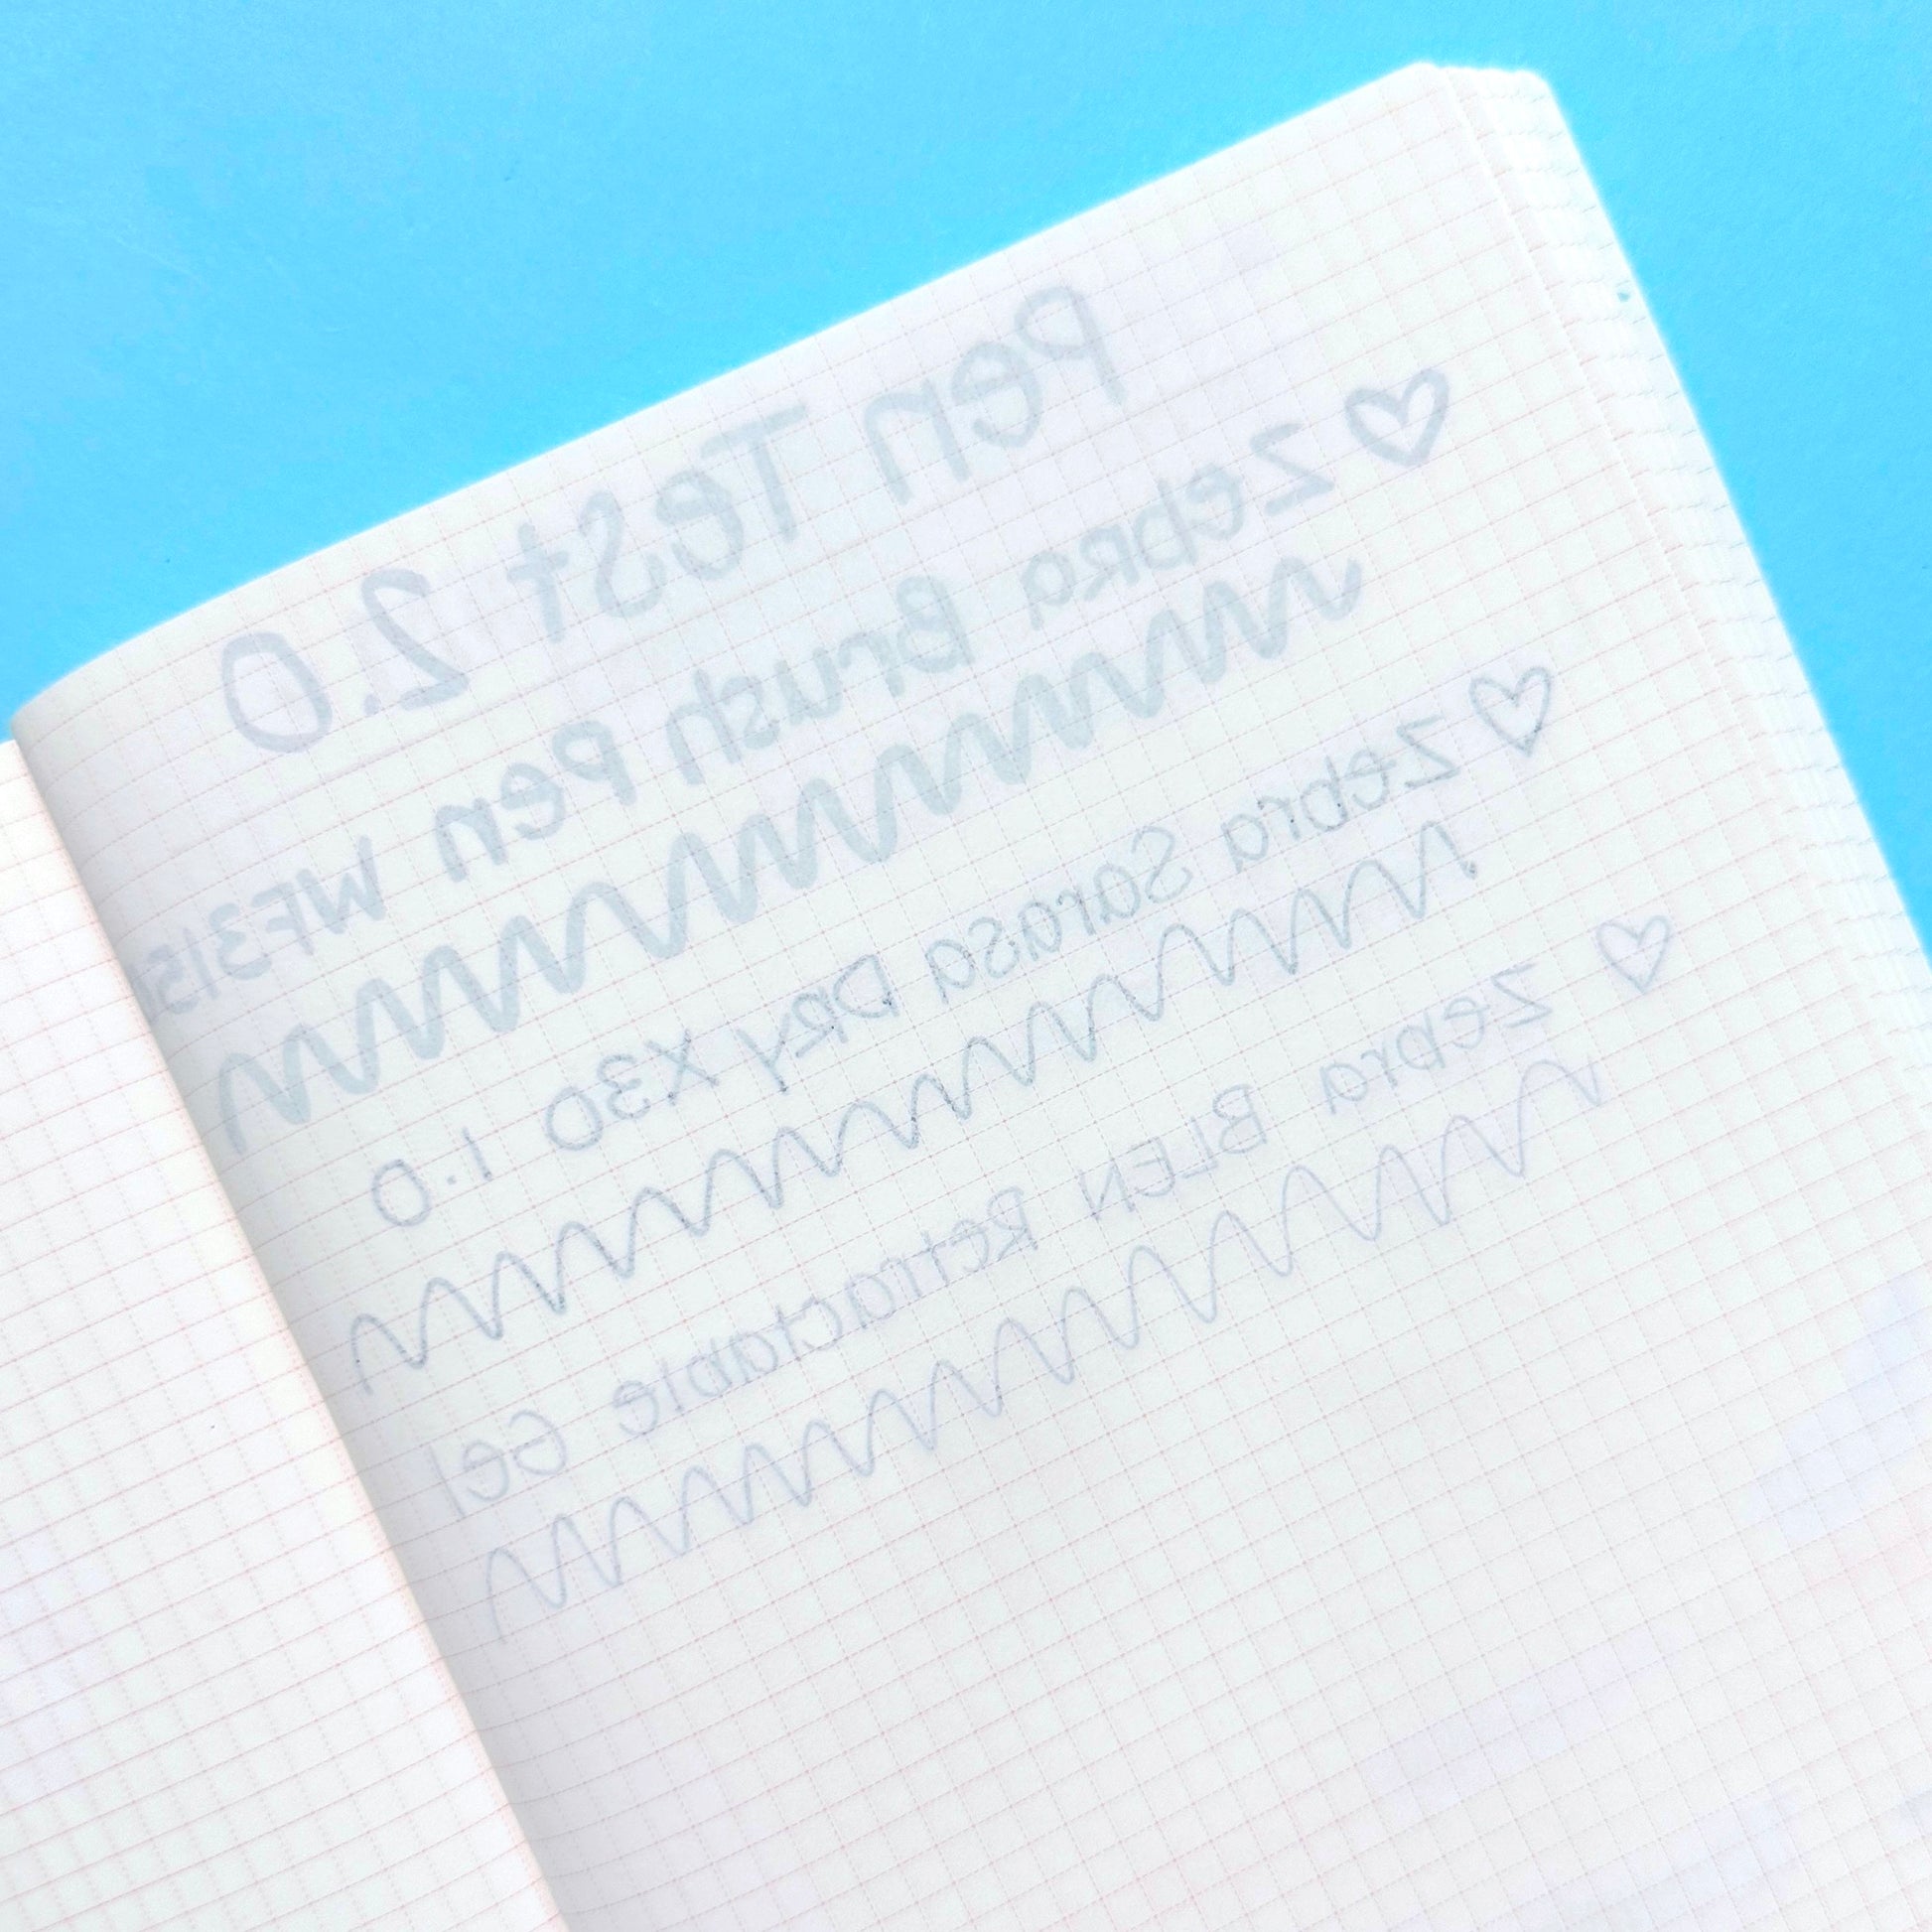 Pen Test 2.0
Zebra Brush Pen WF315
Zebra Sarasa Dry X30 1.0
Zebra BLEN Retractable Gel